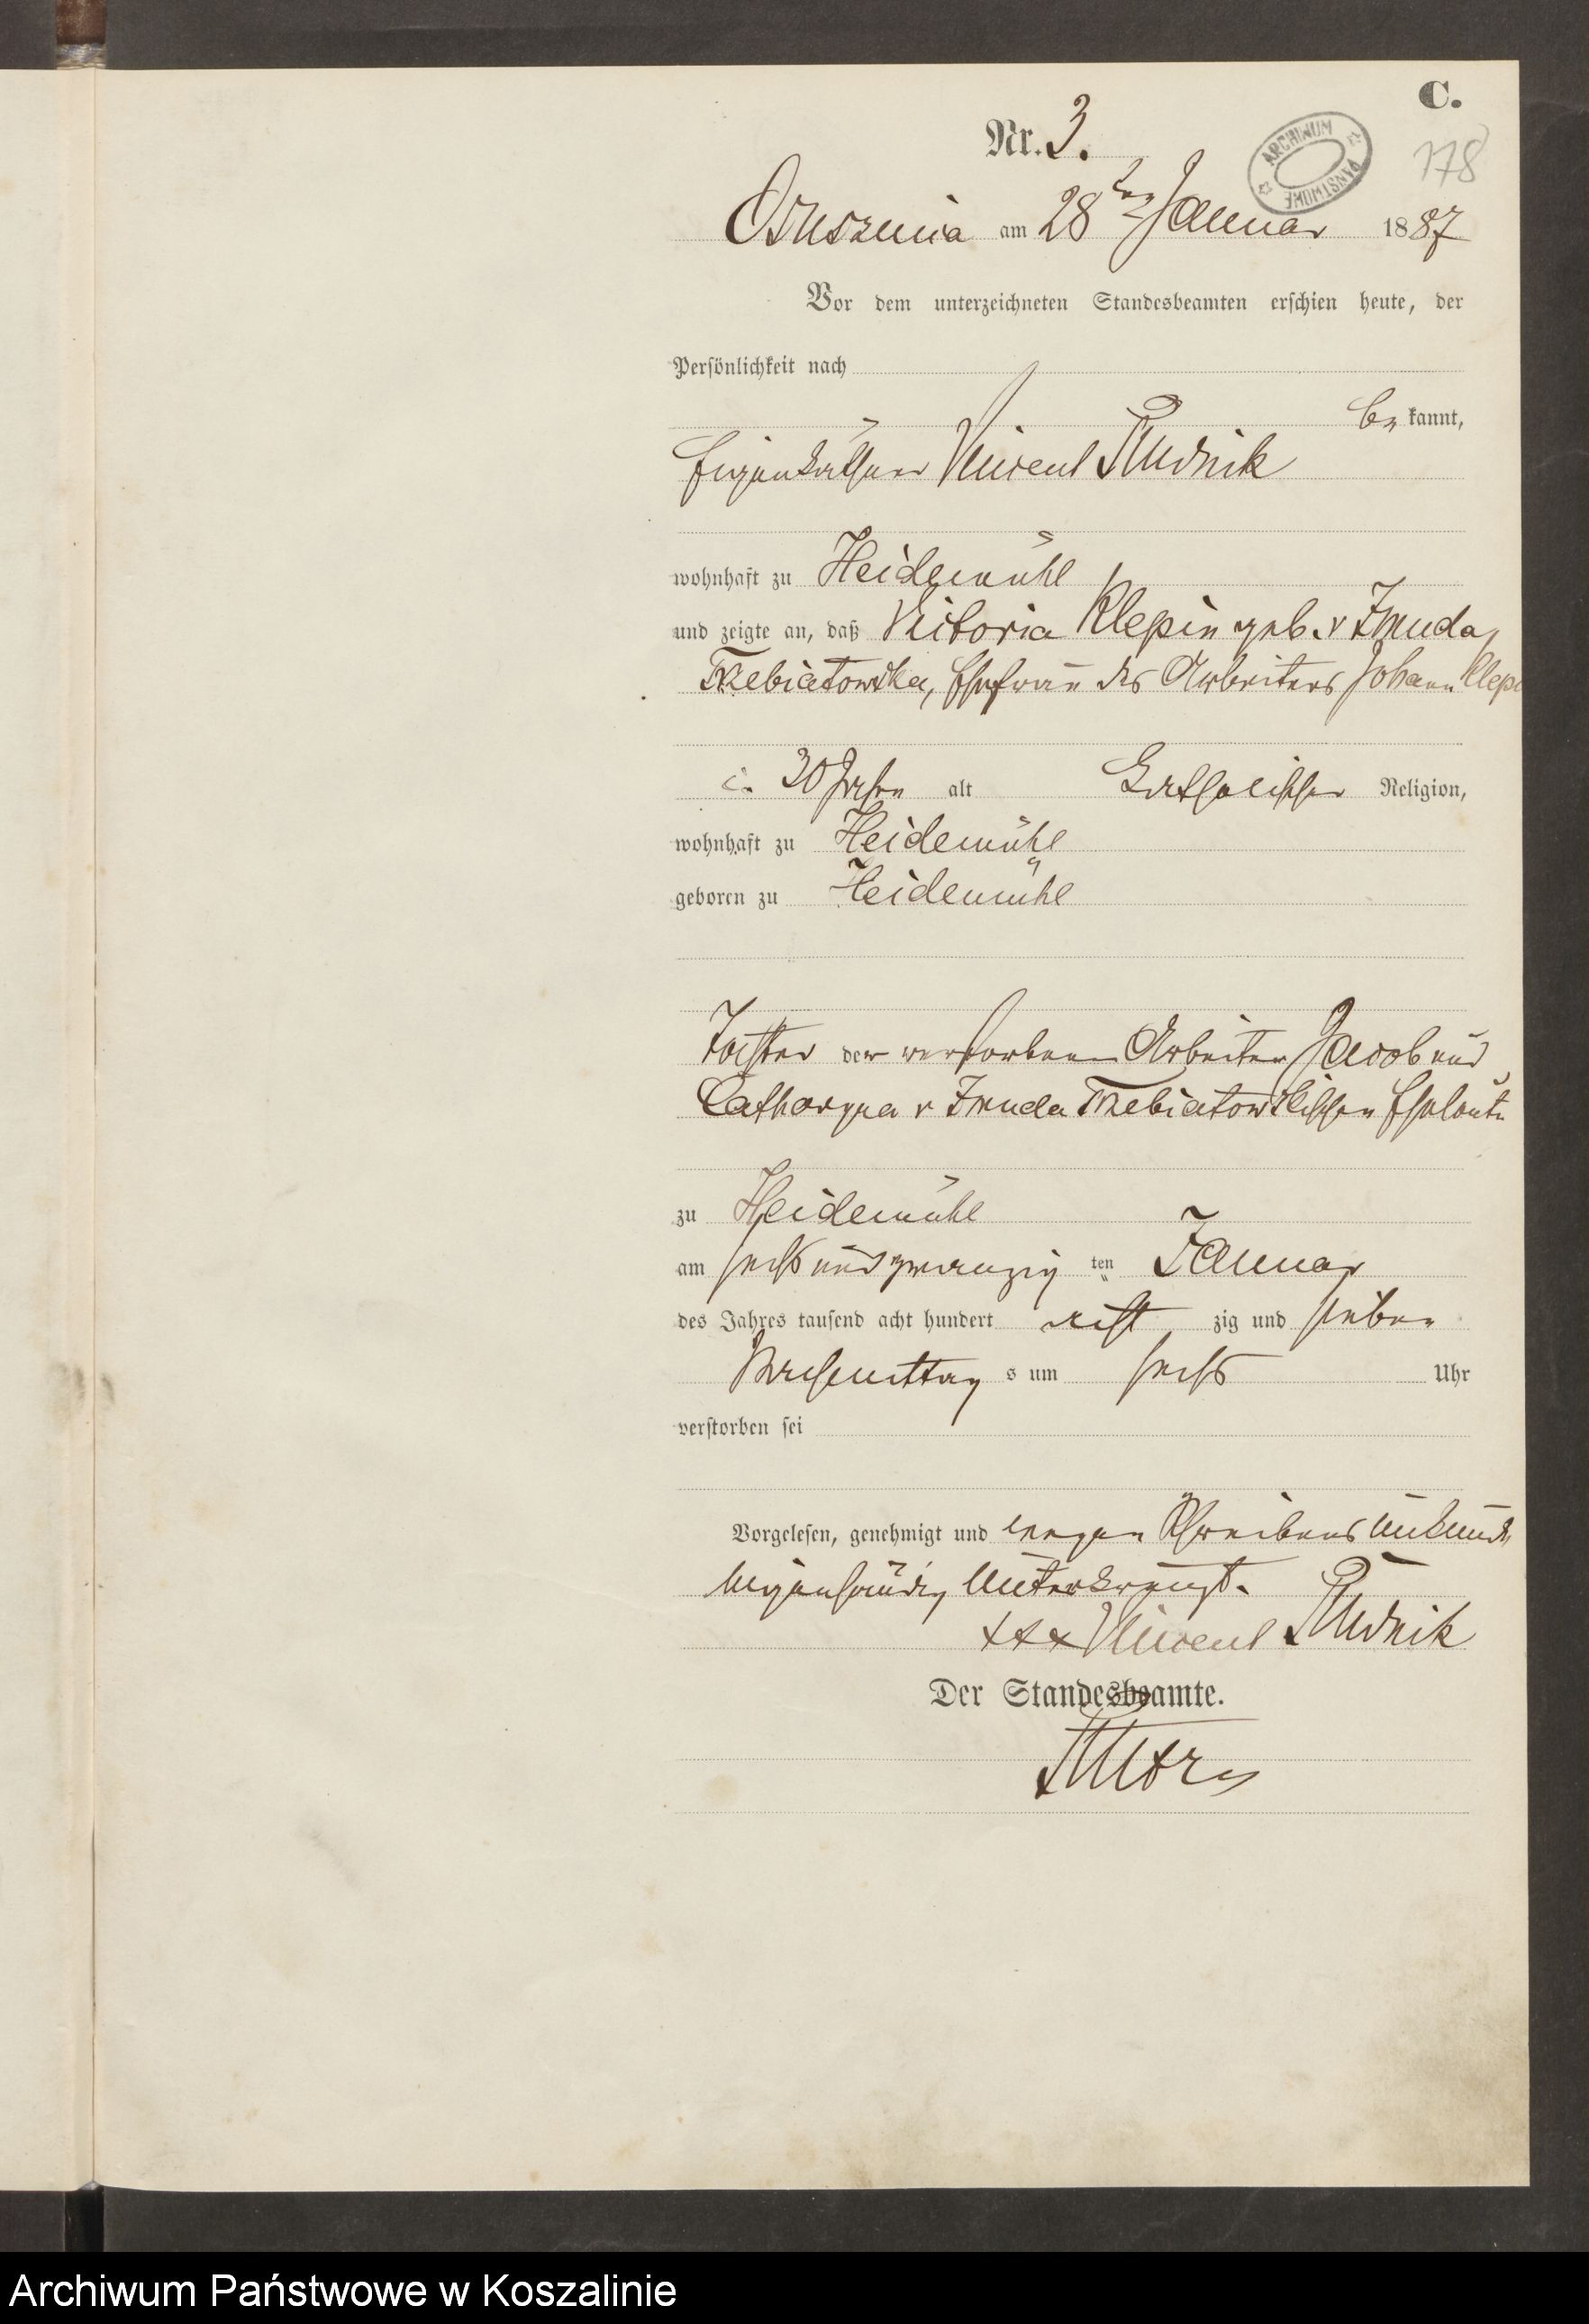 C.
Nr. 3.
ARCHIWUM PAŃSTWOWE
178
Ossuszenica am 28ten Januar 1887
Vor dem unterzeichneten Standesbeamten erschien heute, der
Persönlichkeit nach
be kannt,
Eigenkäthner Vincent Rudnik
wohnhaft zu Heidemühl
und zeigte an, daß Victoria Klepin geb. v Zmuda
Trzebiatowska, Ehefrau des Arbeiters Johann Klepi
30 Jahre alt katholischer Religion,
wohnhaft zu Heidemühl
geboren zu Heidemühl
Tochter der verstorbenen Arbeiter Jacob und
Catharyna v Zmuda Trzebiatowskischen Eheleute
zu Heidemühl
am sechs und zwanzig ten Januar
des Jahres tausend acht hundert acht zig und sieben
Nachmittag s um sechs Uhr
verstorben sei
Vorgelesen, genehmigt und wegen Schreibens Unkunde
eigenhändig Unterkreuzt.
xxx Vincent Rudnik
Der Standesbeamte.
Archiwum Państwowe w Koszalinie